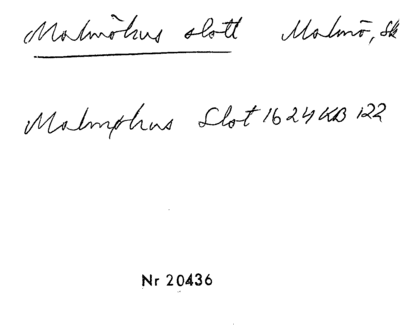 Malmöhus slott Malmö, Sk
Malmøhus Slot 1624 KB 122
Nr 20436